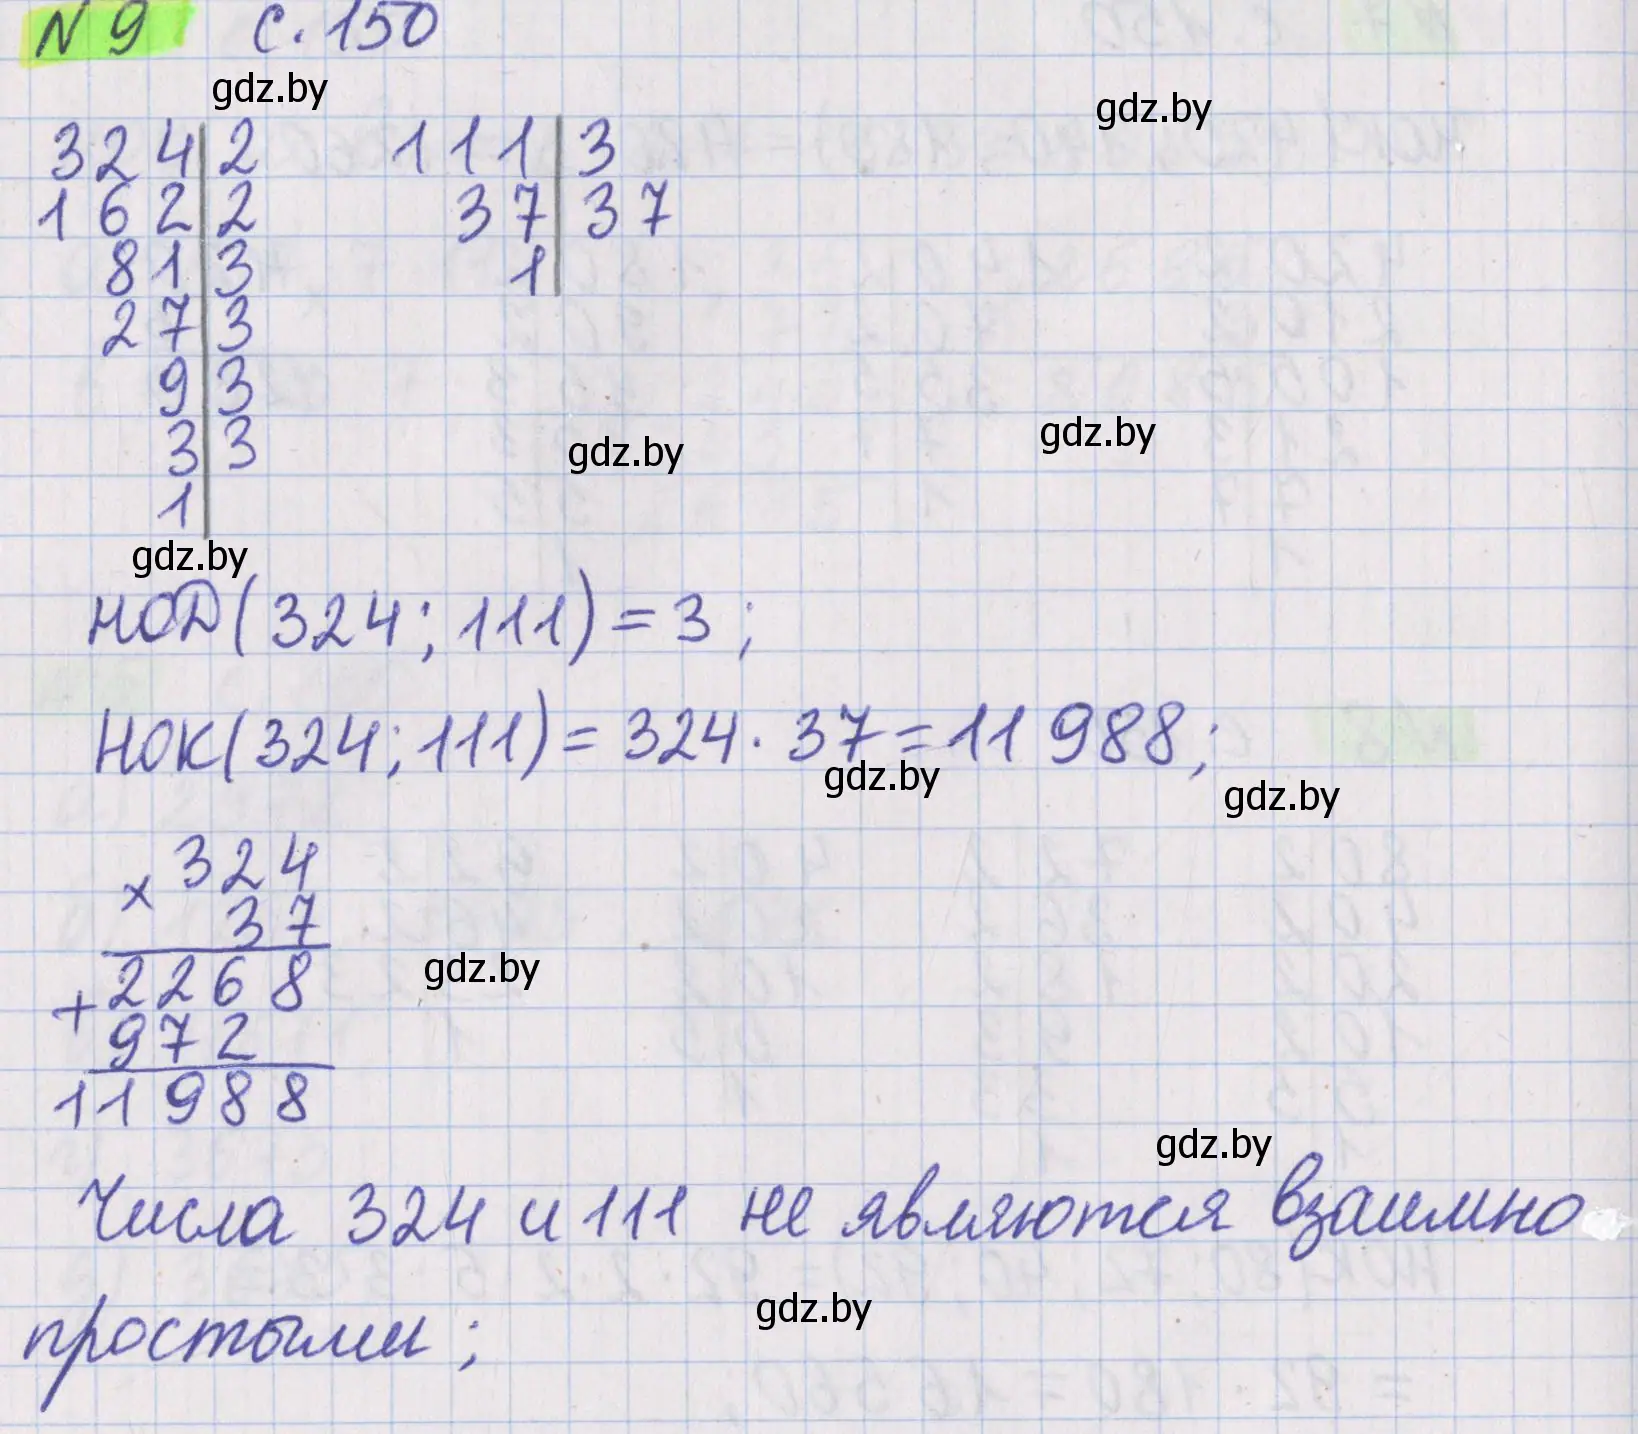 N 9 с. 150
gdz.by
gdz.by
324|2 111|3
162|2 37|37
81|3 1|
27|3
9|3
3|3
1|
gdz.by
gdz.by
gdz.by
НОД(324; 111) = 3;
НОК(324; 111) = 324 · 37 = 11 988;
gdz.by
gdz.by
× 324
37
2268
gdz.by
+ 972
11988
gdz.by
Числа 324 и 111 не являются взаимно
gdz.by
простыми;